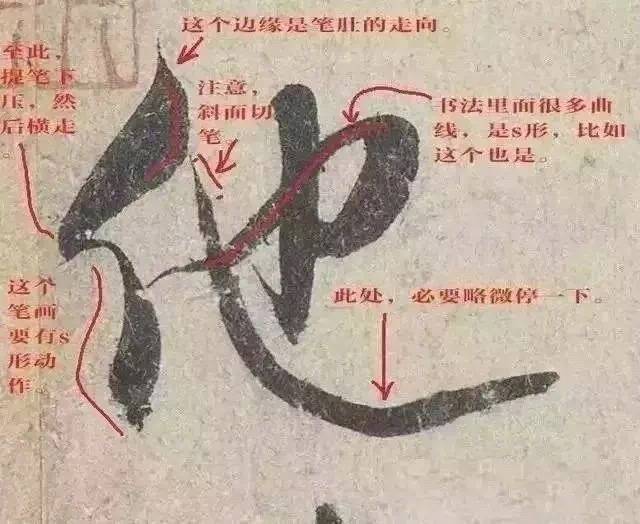 这个边缘是笔肚的走向。
至此，
提笔下
压，然
后横走
。
注意，
斜面切
笔
书法里面很多曲
线，是s形，比如
这个也是。
他
此处，必要略微停一下。
这个
笔画
要有s
形动
作。